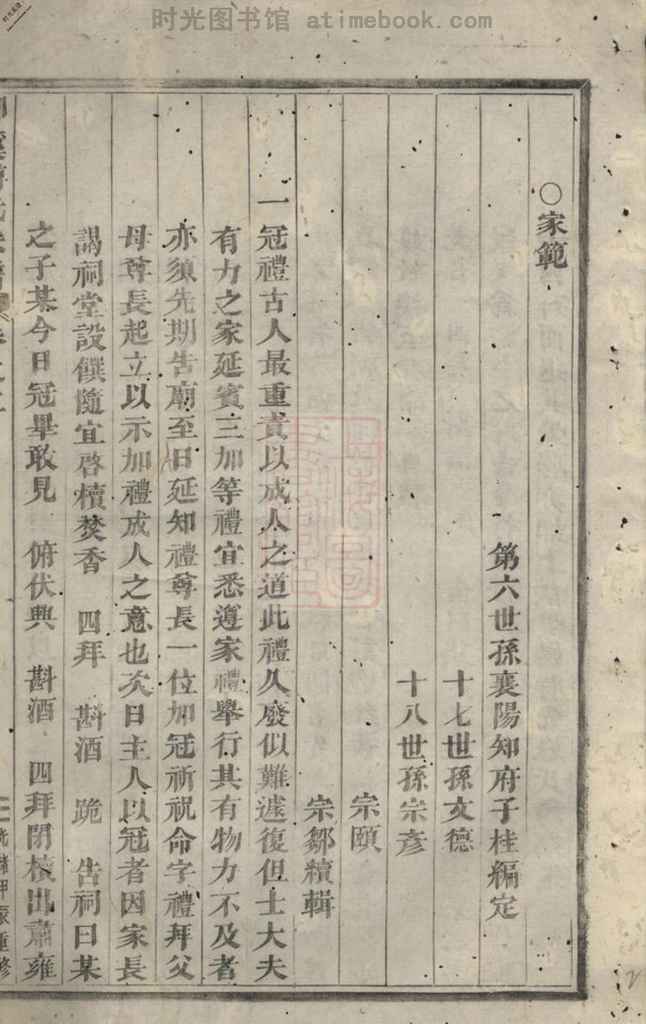 时光图书馆 / atimebook.com
○家範
第六世孫襄陽知府子桂編定
十七世孫文德
十八世孫宗彦
宗頤
宗鄒續輯
一冠禮古人最重責以成人之道此禮久廢似難遽復但士大夫
有力之家延賓三加等禮宜悉遵家禮舉行其有物力不及者
亦須先期告廟至日延知禮尊長一位加冠祈祝命字禮拜父
母尊長起立以示加禮成人之意也次日主人以冠者因家長
謁祠堂設饌隨宜啓櫝焚香 四拜 斟酒 跪 告祠曰某
之子某今日冠畢敢見 俯伏興 斟酒 四拜閉櫝出肅雍
重修